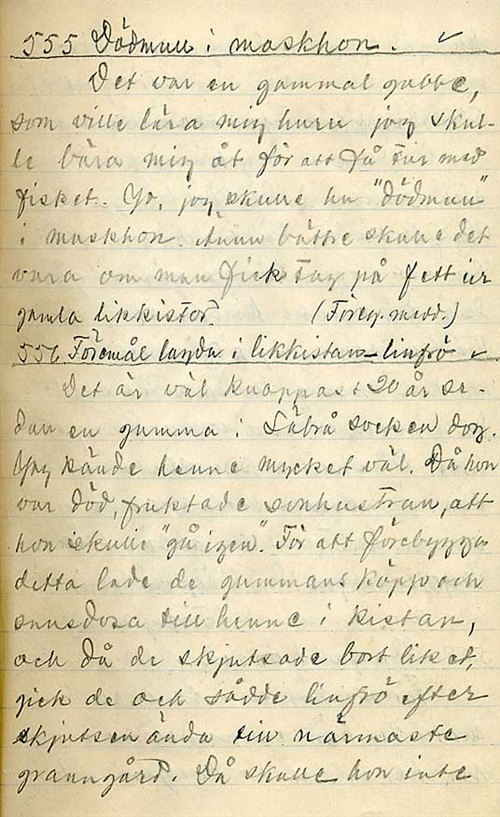 555 Dödmull i maskhon. ✓
Det var en gammal gubbe,
som ville lära mig huru jag skul-
le bära mig åt för att få tur med
fisket. Jo, jag skulle ha "dödmull"
i maskhon. Ännu bättre skulle det
vara om man fick tag på fett ur
gamla likkistor. (Föreg. medd.)
556 Föremål lagda i likkistan - linfrö ✓
Det är väl knappast 20 år se-
dan en gumma i Lärbro socken dog.
Jag kände henne mycket väl. Då hon
var död, fruktade sonhustrun, att
hon skulle "gå igen". För att förebygga
detta lade de gummans käpp och
snusdosa till henne i kistan,
och då de skjutsade bort liket,
gick de och sådde linfrö efter
skjutsen ända till närmaste
granngård. Då skulle hon inte